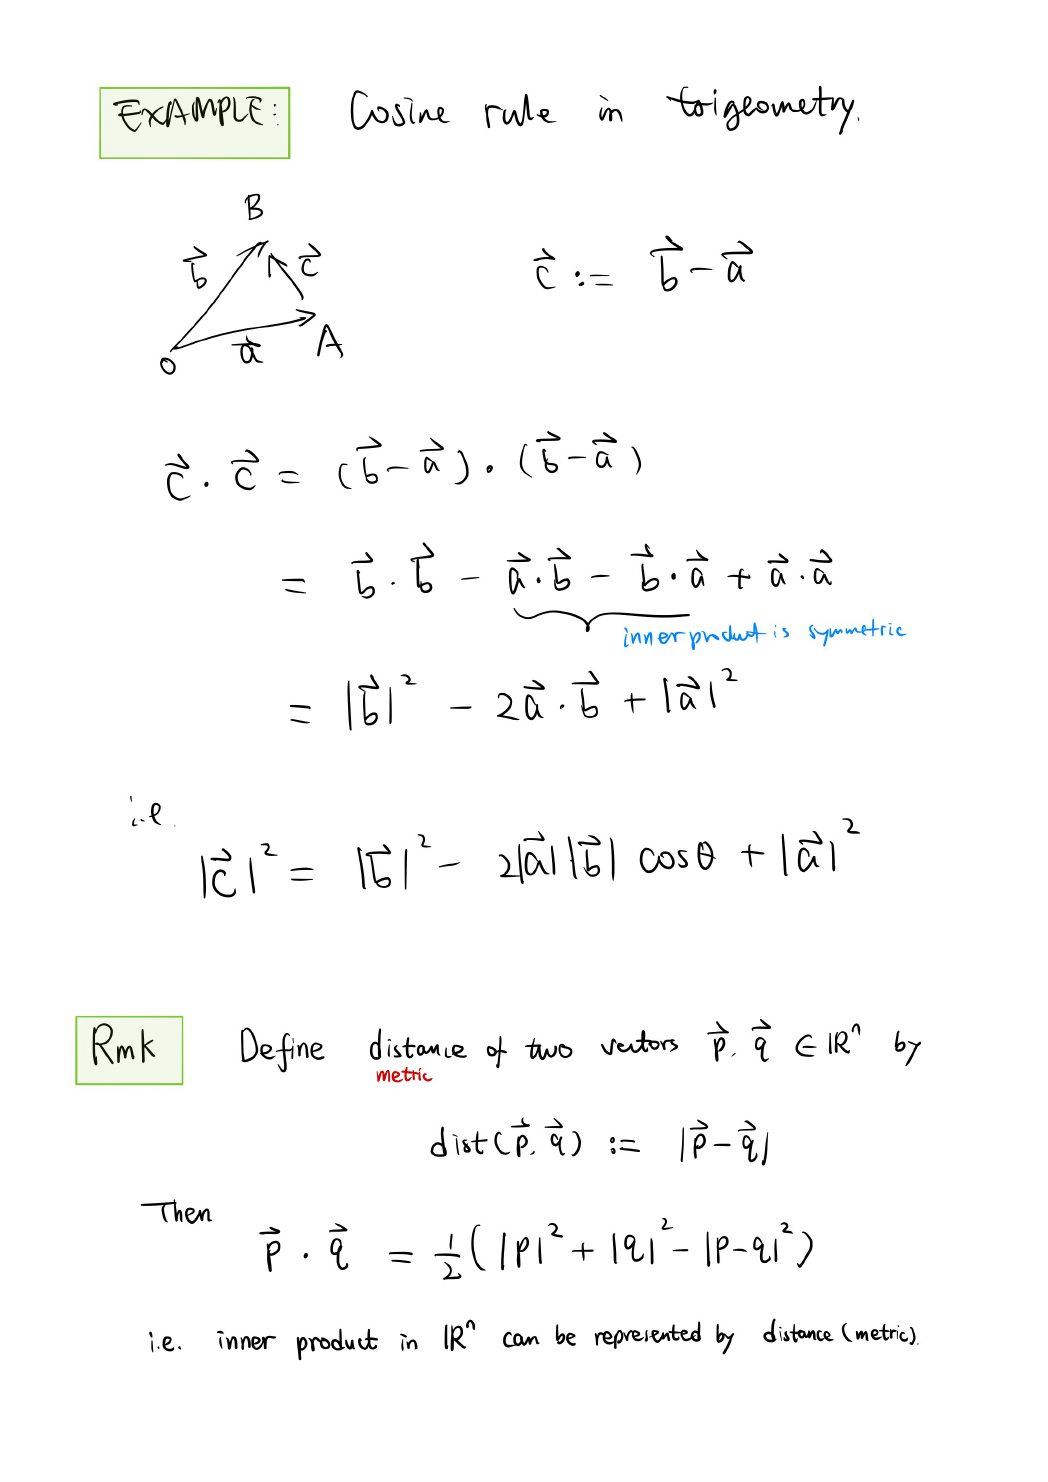 EXAMPLE: Cosine rule in trigeometry.
B
b⃗ c⃗ c⃗ := b⃗ − a⃗
O a⃗ A
c⃗ · c⃗ = (b⃗ − a⃗) · (b⃗ − a⃗)
= b⃗ · b⃗ − a⃗ · b⃗ − b⃗ · a⃗ + a⃗ · a⃗
inner product is symmetric
= |b⃗|² − 2a⃗ · b⃗ + |a⃗|²
i.e.
|c⃗|² = |b⃗|² − 2|a⃗||b⃗| cosθ + |a⃗|²
Rmk Define distance of two vectors p⃗, q⃗ ∈ ℝⁿ by
metric
dist(p⃗, q⃗) := |p⃗ − q⃗|
Then
p⃗ · q⃗ = ½(|p|² + |q|² − |p−q|²)
i.e. inner product in ℝⁿ can be represented by distance (metric).